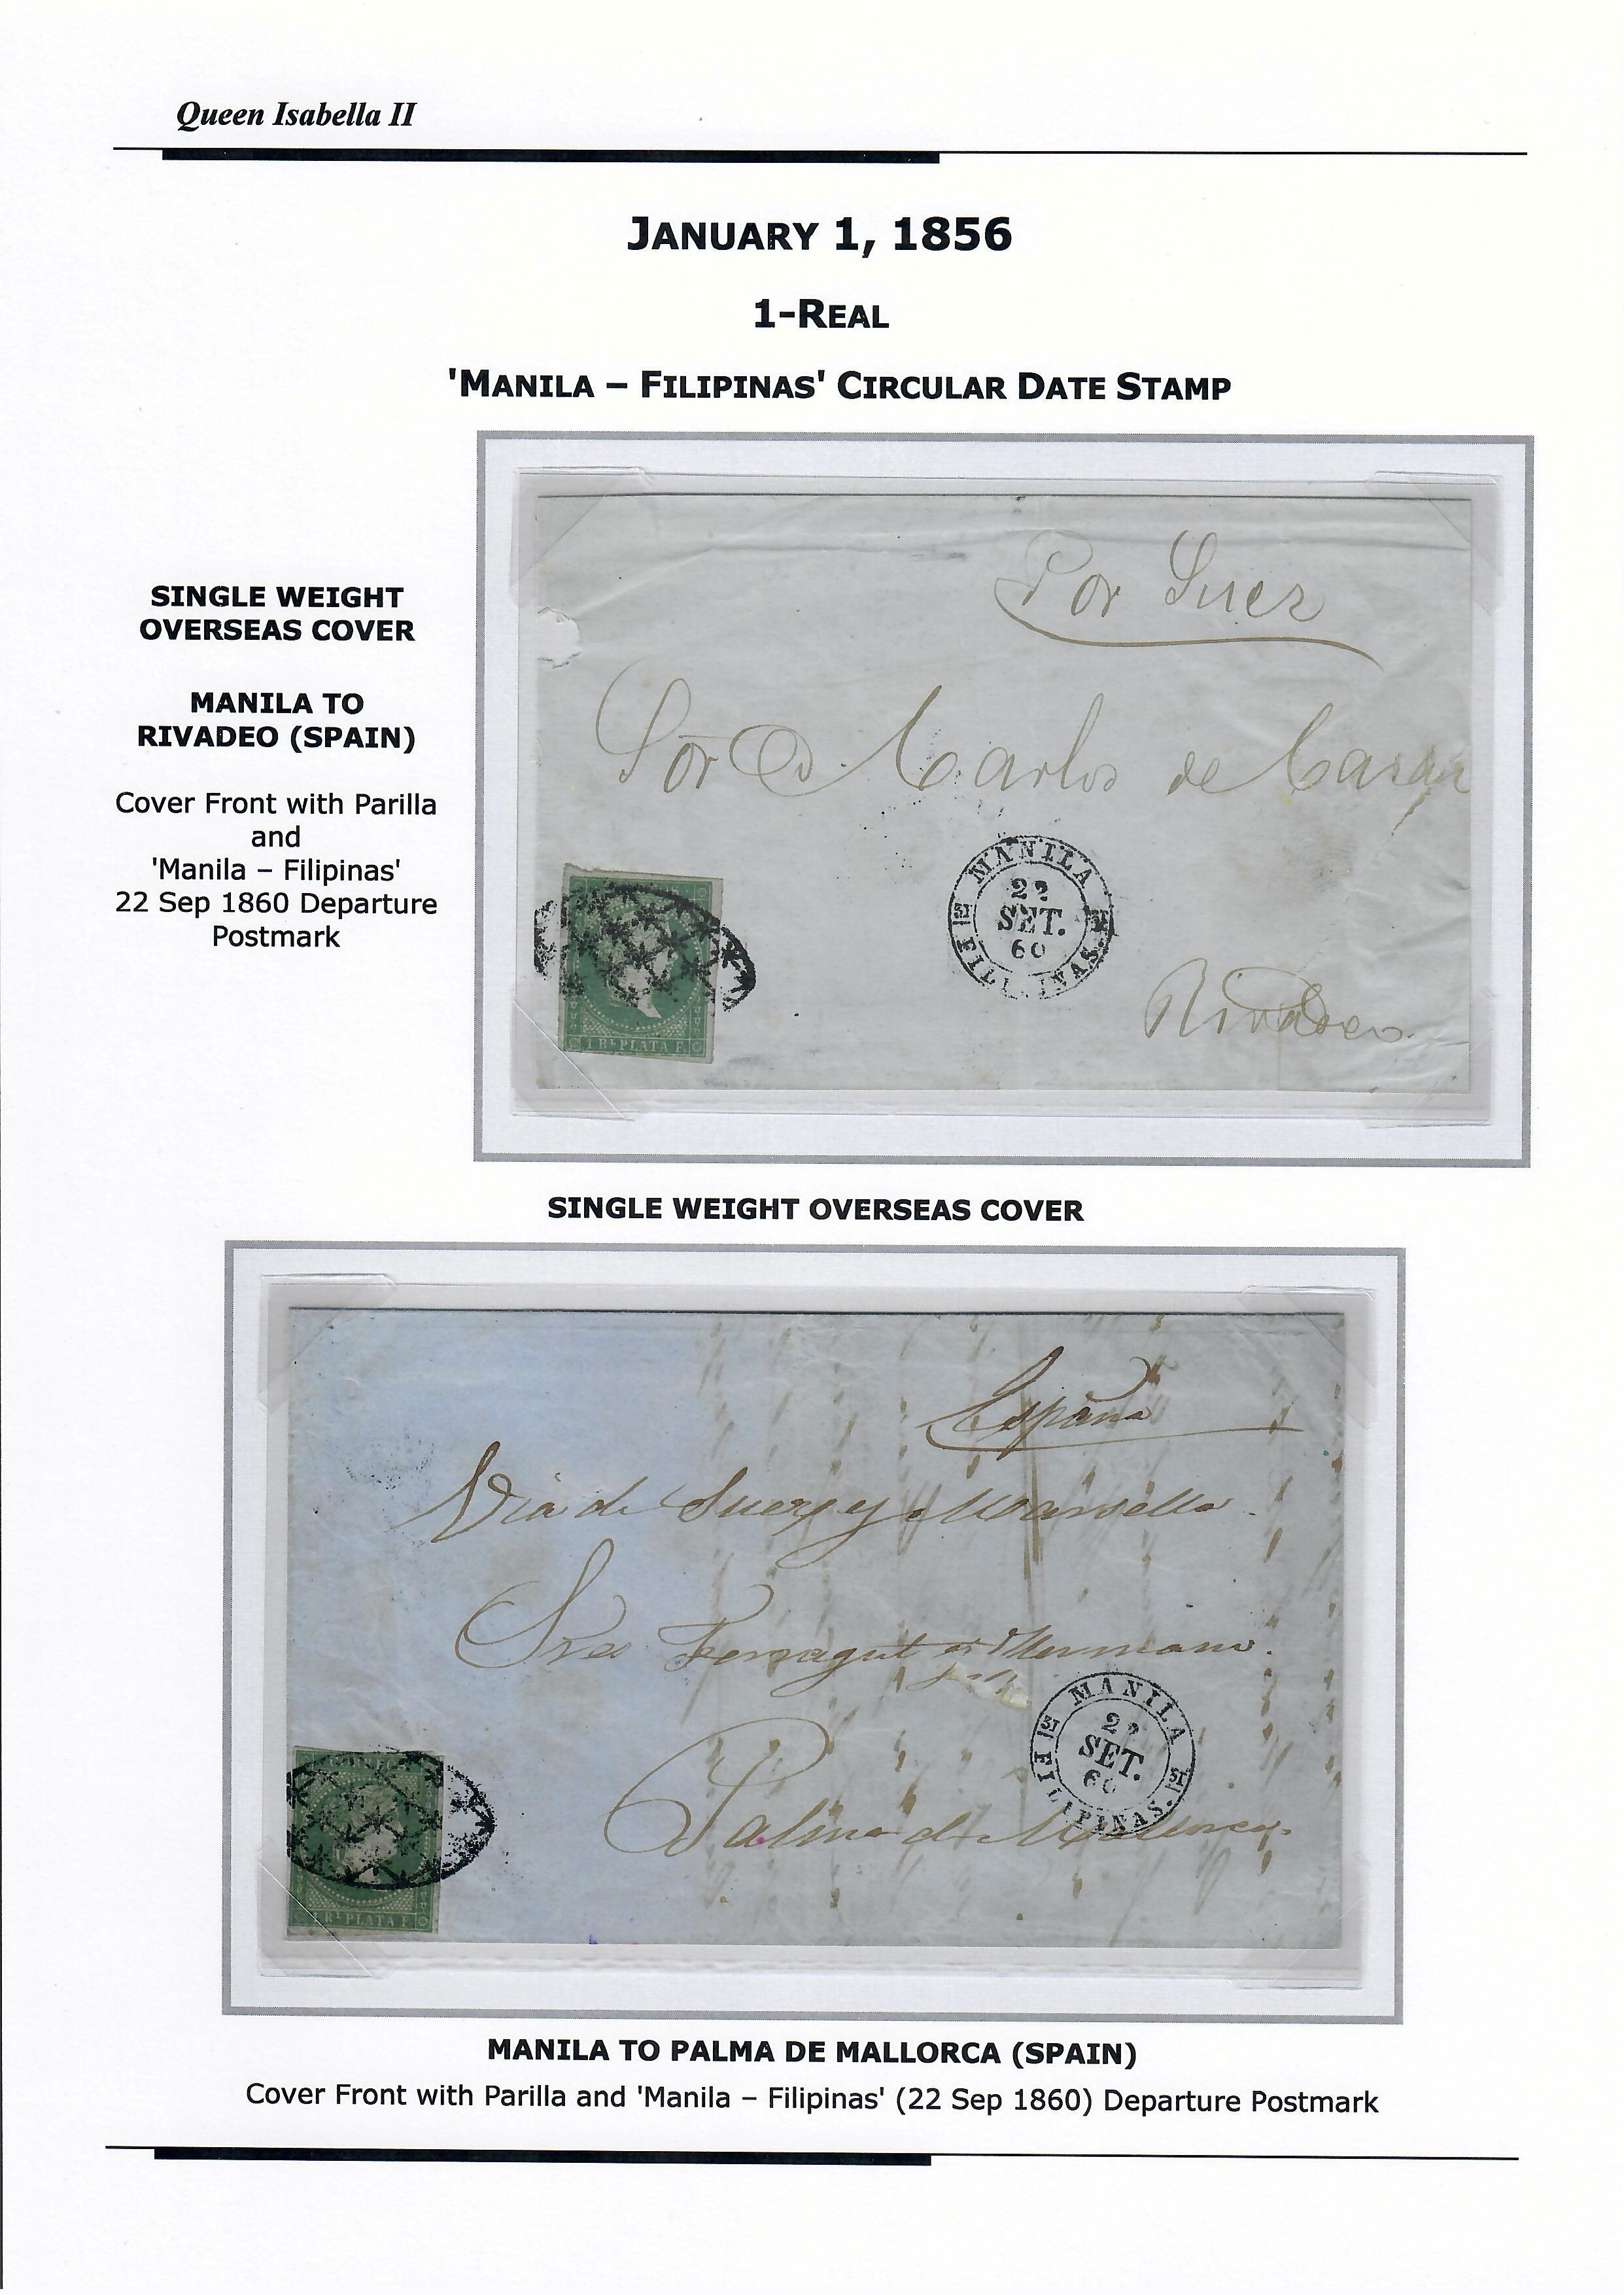 Queen Isabella II
JANUARY 1, 1856
1-REAL
'MANILA – FILIPINAS' CIRCULAR DATE STAMP
SINGLE WEIGHT
OVERSEAS COVER
MANILA TO
RIVADEO (SPAIN)
Cover Front with Parilla
and
'Manila – Filipinas'
22 Sep 1860 Departure
Postmark
Por Suez
Sor D. Carlos de
MANILA
22
SET.
60
FILIPINAS.
Rivadeo.
1 Rl PLATA F.
SINGLE WEIGHT OVERSEAS COVER
España
Via de Suez y Marsella.
Sres Ferragut Hermano.
MANILA
22
SET.
60
FILIPINAS.
Palma de Mallorca.
1 Rl PLATA F.
MANILA TO PALMA DE MALLORCA (SPAIN)
Cover Front with Parilla and 'Manila – Filipinas' (22 Sep 1860) Departure Postmark